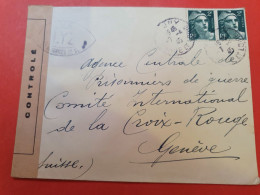 CONTROLÉ
Agence Centrale
Prisonniers de guerre
Comité International
de la Croix-Rouge
Genève
(Suisse.)